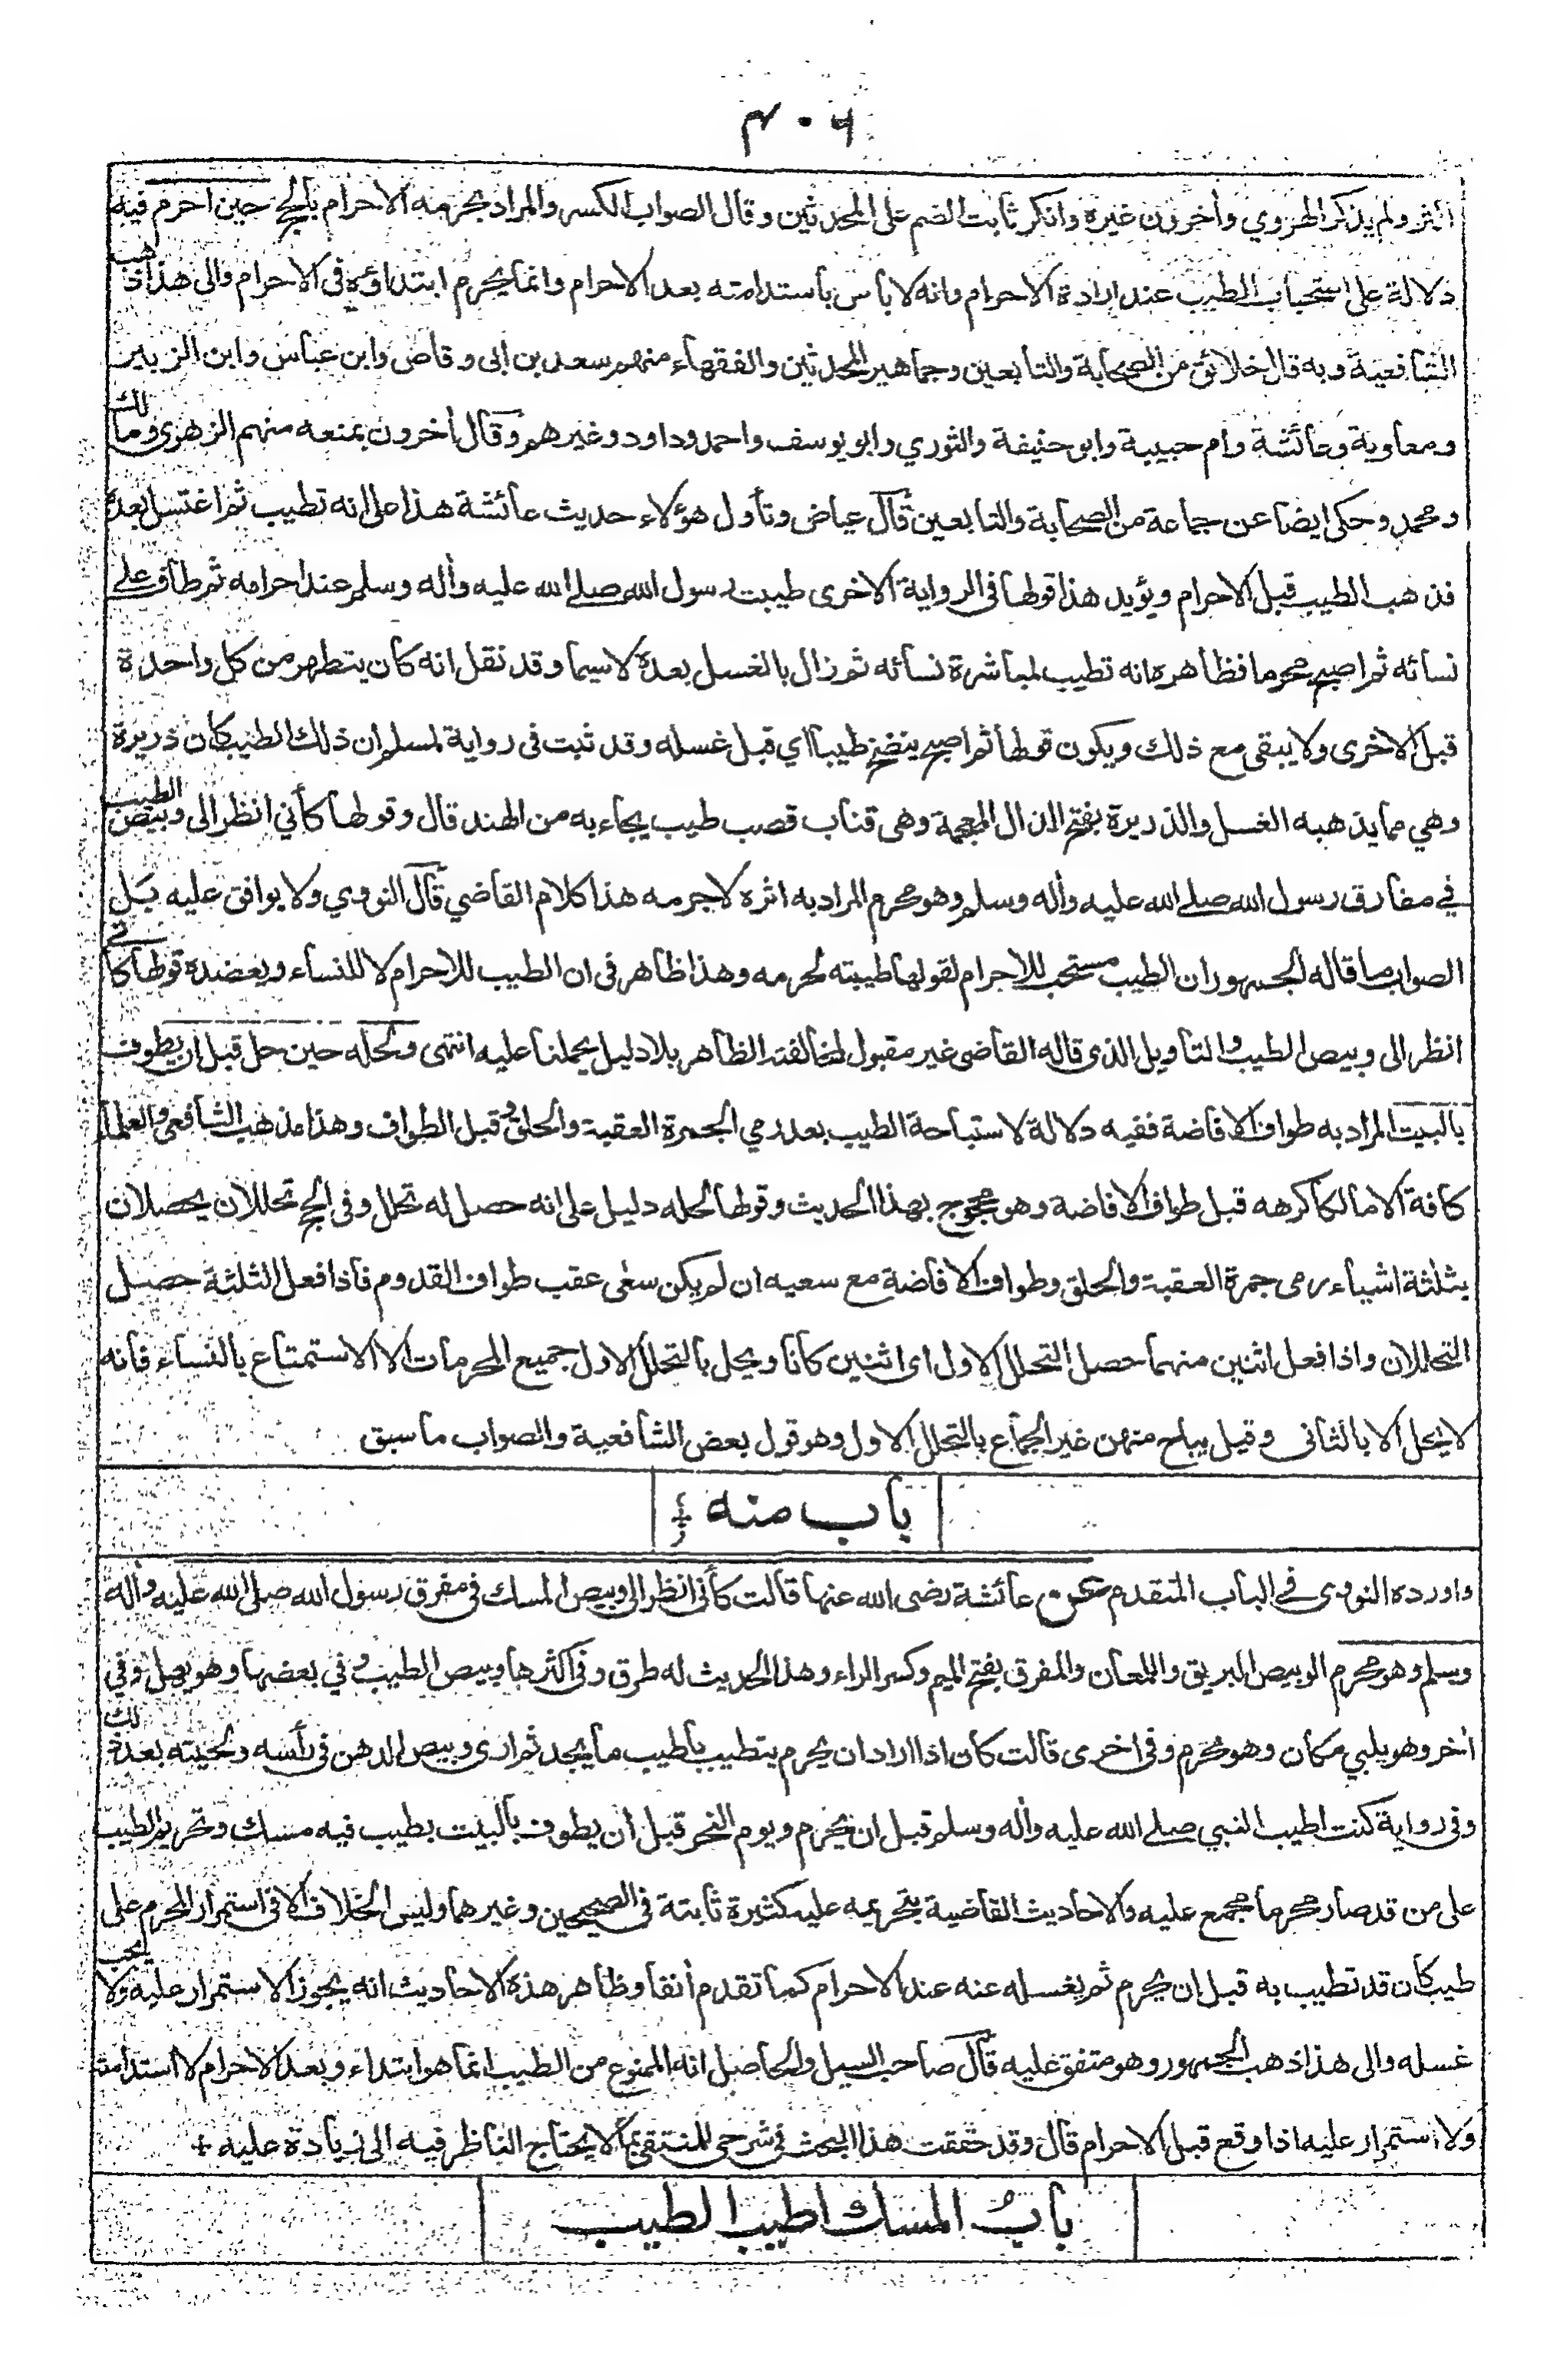 ٤٠٦
اكثر ولم يذكر الهروي وأخرون غيره وانكر ثابت الضم على المحدثين وقال الصواب الكسر والمراد بحرمه الاحرام بالحج حين احرم فيه
دلالة على استحباب الطيب عند ارادة الاحرام وانه لا بأس بأستدامته بعد الاحرام وانما يحرم ابتداؤه فى الاحرام والى هذا ذهب
الشافعية وبه قال خلائق من الصحابة والتابعين وجماهير المحدثين والفقهاء منهم سعد بن ابى وقاص وابن عباس وابن الزبير
ومعاوية وعائشة وام حبيبة وابو حنيفة والثوري وابو يوسف واحمد وداود وغيرهم وقال أخرون بمنعه منهم الزهرى ومالك
ومحمد وحكى ايضا عن جماعة من الصحابة والتابعين قال عياض وتأول هؤلاء حديث عائشة هذا على انه تطيب ثم اغتسل بعده
فذهب الطيب قبل الاحرام ويؤيد هذا قولها فى الرواية الاخرى طيبت رسول الله صلے الله عليه وأله وسلم عند احرامه ثم طاف علے
نسائه ثم اصبح محرما فظاهره انه تطيب لمباشرة نسائه ثم زال بالغسل بعده لاسيما وقد نقل انه كان يتطهر من كل واحدة
قبل الاخرى ولا يبقى مع ذلك ويكون قولها ثم اصبح ينضخ طيبا اي قبل غسله وقد ثبت فى رواية لمسلم ان ذلك الطيب كان ذريرة
وهي مما يذهبه الغسل والذريرة بفتح الذال المعجمة وهى قناب قصب طيب يجاء به من الهند قال وقولها كأني انظر الى وبيص الطيب
في مفارق رسول الله صلے الله عليه وأله وسلم وهو محرم المراد به اثره لا جرمه هذا كلام القاضي قال النووي ولا يوافق عليه بل
الصواب ما قاله الجمهور ان الطيب مستحب للاحرام لقولها طيبته لحرمه وهذا ظاهر فى ان الطيب للاحرام لا للنساء ويعضده قولها كأني
انظر الى وبيص الطيب والتأويل الذى قاله القاضى غير مقبول لمخالفته الظاهر بلا دليل يحملنا عليه انتهى ولحله حين حل قبل ان يطوف
بالبيت المراد به طواف الافاضة ففيه دلالة لاستباحة الطيب بعد رمي الجمرة العقبة والحلق وقبل الطواف وهذا مذهب الشافعى والعلماء
كافة الا مالكا كرهه قبل طواف الافاضة وهو محجوج بهذا الحديث وقولها لحله دليل على انه حصل له تحلل وفى الحج تحللان يحصلان
بثلثة اشياء رمى جمرة العقبة والحلق وطواف الافاضة مع سعيه ان لم يكن سعى عقب طواف القدوم فاذا فعل الثلثة حصل
التحللان واذا فعل اثنين منهما حصل التحلل الاول اى اثنين كانا ويحل بالتحلل الاول جميع المحرمات الا الاستمتاع بالنساء فانه
لا يحل الا بالثانى وقيل يباح منهن غير الجماع بالتحلل الاول وهو قول بعض الشافعية والصواب ما سبق
باب منه
واورده النووى فے الباب المتقدم عن عائشة رضى الله عنها قالت كأنى انظر الى وبيص المسك فى مفرق رسول الله صلى الله عليه وأله
وسلم وهو محرم الوبيص البريق واللمعان والمفرق بفتح الميم وكسر الراء وهذا الحديث له طرق وفى اكثرها وبيص الطيب وفي بعضها وهو يهل وفي
أخر وهو يلبي مكان وهو محرم وفى اخرى قالت كان اذا اراد ان يحرم يتطيب بأطيب ما يجد ثم ارى وبيص الدهن فى رأسه ولحيته بعد ذلك
وفى رواية كنت اطيب النبي صلے الله عليه وأله وسلم قبل ان يحرم ويوم النحر قبل أن يطوف بالبيت بطيب فيه مسك وتحريم الطيب
على من قد صار محرما مجمع عليه والاحاديث القاضية بتحريمه عليه كثيرة ثابتة فى الصحيحين وغيرهما وليس الخلاف الا فى استمرار المحرم على
طيب كان قد تطيب به قبل ان يحرم ثم يغسله عنه عند الاحرام كما تقدم أنفا وظاهر هذه الاحاديث انه يجوز الاستمرار عليه ولا يجب
غسله والى هذا ذهب الجمهور وهو متفق عليه قال صاحب السيل والحاصل انه الممنوع من الطيب انما هو ابتداء وبعد الاحرام لا استدامة
ولا استمرار عليه اذا وقع قبل الاحرام قال وقد حققت هذا البحث فى شرحى للمنتقى بما لا يحتاج الناظر فيه الى زيادة عليه
بابُ المسك اطيب الطيب